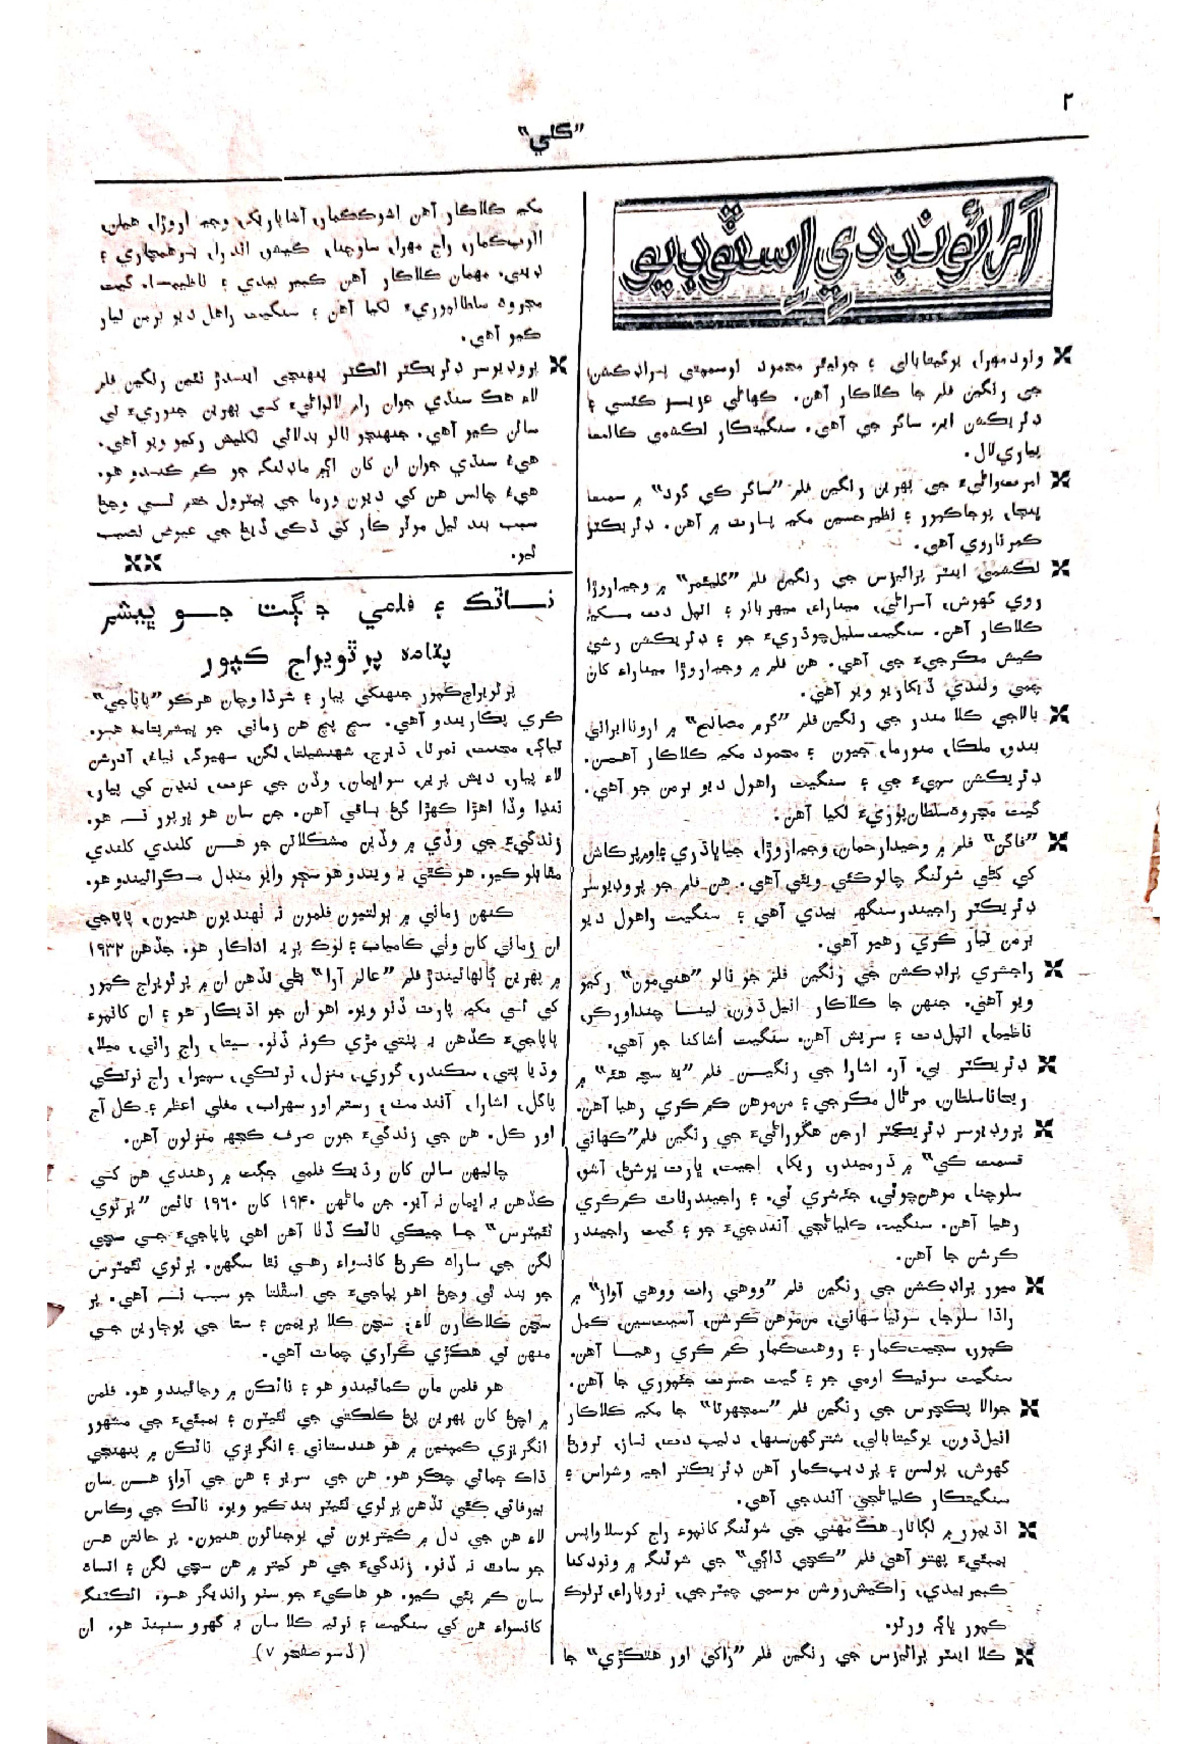 ٢
”ڪلي“
آرائونڊ دي اِسٽوڊيو
ونود مهرا، يوگيتابالي ۽ جونيئر محمود اوسمپتي پراڊڪشن
جي رنگين فلم جا ڪلاڪار آهن. ڪهاڻي عزيز ڪئسي ۽
ڊئريڪشن ايم. ساگر جي آهي. سنگيتڪار لڪشمي ڪانت
پياري لال.
امرت‌واڻيءَ جي پهرين رنگين فلم ”ساگر ڪي گود“ ۾ سميت
ڀنجا، پوجاڪپور ۽ نظير حسين مکيه پارٽ ۾ آهن. ڊئريڪٽر
ڪمر ناروي آهي.
لڪشمي اينٽرپرائيزس جي رنگين فلم ”گليئمر“ ۾ وجيه اروڙا
رومي گهوش، آسراڻي، ميناراءِ، ميهربانو ۽ اتپل دت مکيه
ڪلاڪار آهن. سنگيت سليل چوڌريءَ جو ۽ ڊئريڪشن رشي
ڪيش مڪرجيءَ جي آهي. هن فلم ۾ وجيه اروڙا ميناراءِ کان
چمي وٺندي ڏيکاريو ويو آهي.
بالاجي ڪلا مندر جي رنگين فلم ”گرم مصالح“ ۾ اروناايراني
بندو، ملڪا، منورما، جيون ۽ محمود مکيه ڪلاڪار آهن.
ڊئريڪشن سهيءَ جي ۽ سنگيت راهول ديو برمن جو آهي.
گيت مجروح سلطان‌پوريءَ لکيا آهن.
”فاگن“ فلم ۾ وحيدارحمان، وجيه اروڙا، جيا ڀاڌري ۽ اوم پرڪاش
کي کڻي شوٽنگ چالو ڪئي ويئي آهي. هن فلم جو پروڊيوسر
ڊئريڪٽر راجيندر سنگهه بيدي آهي ۽ سنگيت راهول ديو
برمن تيار ڪري رهيو آهي.
راجشري پراڊڪشن جي رنگين فلم جو نالو ”هني‌مون“ رکيو
ويو آهي. جنهن جا ڪلاڪار انيل ڌون، لينا چنداورڪر،
ناظيما، اتپل دت ۽ سريش آهن. سنگيت اُشاکنا جو آهي.
ڊئريڪٽر بي. آر. اشارا جي رنگين فلم ”يه سچ هئه“ ۾
ريحانا سلطان، مرڻال مڪرجي ۽ من موهن ڪم ڪري رهيا آهن.
پروڊيوسر ڊئريڪٽر ارجن هنگوراڻيءَ جي رنگين فلم ”ڪهاڻي
قسمت ڪي“ ۾ ڌرميندر، ريکا، اجيت، ڀارت ڀوشڻ، آشو،
سلوچنا، موهن چوٽي، جئشري ٽي. ۽ راجيندرناٿ ڪم ڪري
رهيا آهن. سنگيت، ڪلياڻجي آنندجيءَ جو ۽ گيت راجيندر
ڪرشن جا آهن.
ميور پراڊڪشن جي رنگين فلم ”ووهي رات ووهي آواز“ ۾
راڌا سلوجا، سونيا سهاني، من موهن ڪرشن، آسيت سين، ڪمل
ڪپور، سجيت‌ڪمار ۽ روهت‌ڪمار ڪم ڪري رهيا آهن.
سنگيت سونيڪ اومي جو ۽ گيت حسرت جئپوري جا آهن.
جوالا پڪچرس جي رنگين فلم ”سمجهوتا“ جا مکيه ڪلاڪار
انيل ڌون، يوگيتابالي، شترگهن سنها، دليپ دت، نماز، تروڻ
گهوش، پولسن ۽ پرديپ‌ڪمار آهن ڊئريڪٽر اجيه وشواس ۽
سنگيتڪار ڪلياڻجي آنندجي آهي.
اڌيپور ۾ لڳاتار هڪ مهني جي شوٽنگ کانپوءِ راج کوسلا واپس
بمبئيءَ پهتو آهي فلم ”ڪچي ڌاڳي“ جي شوٽنگ ۾ ونود کنا
ڪبير بيدي، راڪيش روشن موسمي چيٽرجي، نروپاراءِ، ترلوڪ
ڪپور ڀاڱو ورتو.
ڪلا اينٽرپرائيزس جي رنگين فلم ”راکي اور هٿڪڙي“ جا
مکيه ڪلاڪار آهن اشوڪ‌ڪمار، آشا پاريک، وجيه اروڙا، هيلن،
انوپ‌ڪمار، راج مهرا، سلوچنا، ڪيشٽو، اندرا، برهمچاري ۽
ڊيئي. مهمان ڪلاڪار آهن ڪبير بيدي ۽ ناظيما. گيت
مجروح سلطانپوريءَ لکيا آهن ۽ سنگيت راهل ديو برمن تيار
ڪيو آهي.
پروڊيوسر ڊئريڪٽر ائڪٽر پنهنجي ايندڙ نئين رنگين فلم
لاءِ هڪ سنڌي جوان رام لالواڻيءَ کي پهرين جنوريءَ تي
سائن ڪيو آهي. جنهنجو نالو بدلائي لکليش رکيو ويو آهي.
هيءُ سنڌي جوان ان کان اڳي ماڊلنگ جو ڪم ڪندو هو.
هيءُ چانس هن کي ديون ورما جي پيٽرول ختم ٿي وڃڻ
سبب بند ٿيل موٽر ڪار کي ڌڪي ڏيڻ جي عيوض نصيب
ٿيو.
ناٽڪ ۽ فلمي جڳت جو ڀيشم
پتامہ پرٿويراج ڪپور
پرٿويراج ڪپور جنهنکي پيار ۽ شرڌا وچان هرڪو ”پاپاجي“
ڪري پڪاريندو آهي. سچ پچ هن زماني جو ڀيشم پتامه هو.
تياڳ، محنت، نمرتا، ڌيرج، شهنشيلتا، لگن، سهيوگ، نياءِ، آدرشن
لاءِ پيار، ديش پريم، سواڀمان، وڏن جي عزت، ننڍن کي پيار،
ننڍا وڏا اهڙا ڪهڙا گڻ باقي آهن. جن سان هو ڀرپور نہ هو.
زندگيءَ جي وڏي ۾ وڏين مشڪلاتن جو هن کلندي کلندي
مقابلو ڪيو. هو ڪٿي بہ ويندو هو سڄو وايو منڊل مسڪرائيندو هو.
ڪنهن زماني ۾ بولتيون فلمون نہ ٺهنديون هيون، پاپاجي
ان زماني کان وٺي ڪامياب ۽ لوڪ پريہ اداڪار هو. جڏهن ١٩٣٢
۾ پهرين ڳالهائيندڙ فلم ”عالم آرا“ ٺهي تڏهن ان ۾ پرٿويراج ڪپور
کي ئي مکيه پارٽ ڏنو ويو. اهو ان جو اڌيڪار هو ۽ ان کانپوءِ
پاپاجيءَ ڪڏهن بہ پٺتي مڙي ڪونہ ڏٺو. سيتا، راج راني، ميلا،
وڌيا پتي، سڪندر، گوري، منزل، نرتڪي، سپيرا، راج نرتڪي
پاگل، اشارا، آنند مٺ، رستم اور سهراب، مغلي اعظم ۽ ڪل آج
اور ڪل. هن جي زندگيءَ جون صرف ڪجهہ منزلون آهن.
چاليهن سالن کان وڌيڪ فلمي جڳت ۾ رهندي هن کي
ڪڏهن بہ اڀمان نہ آيو. جن ماڻهن ١٩٤٠ کان ١٩٦٠ تائين ”پرٿوي
ٿيئٽرس“ جا جيڪي ناٽڪ ڏٺا آهن اهي پاپاجيءَ جي سچي
لگن جي ساراهہ ڪرڻ کانسواءِ رهي نٿا سگهن. پرٿوي ٿيئٽرس
جو بند ٿي وڃڻ اهو پاپاجيءَ جي اسڦلتا جو سبب نہ آهي. پر
سڄن ڪلاڪارن لاءِ، سڄن ڪلا پريمين ۽ ستا جي پوڄارين جي
منهن تي هڪڙي ڪراري چماٽ آهي.
هو فلمن مان ڪمائيندو هو ۽ ناٽڪن ۾ وڃائيندو هو. فلمن
۾ اچڻ کان پهرين پڻ ڪلڪتي جي ٿيٽرن ۽ بمبئيءَ جي مشهور
انگريزي ڪمپنين ۾ هو هندستاني ۽ انگريزي ناٽڪن ۾ پنهنجي
ڌاڪ ڄمائي چڪو هو. هن جي سرير ۽ هن جي آواز هن سان
بيوفائي ڪئي تڏهن پرٿوي ٿيٽر بند ڪيو ويو. ناٽڪ جي وڪاس
لاءِ هن جي دل ۾ ڪيتريون ئي يوجنائون هيون. پر حالتن هن
جو ساٿ نہ ڏنو. زندگيءَ جي هر کيتر ۾ هن سچي لگن ۽ اتساهہ
سان ڪم پئي ڪيو. هو هاڪيءَ جو سٺو رانديگر هو. ائڪٽنگ
کانسواءِ هن کي سنگيت ۽ نرتيه ڪلا سان بہ گهرو سنٻنڌ هو. ان
(ڏسو صفحو ٧)